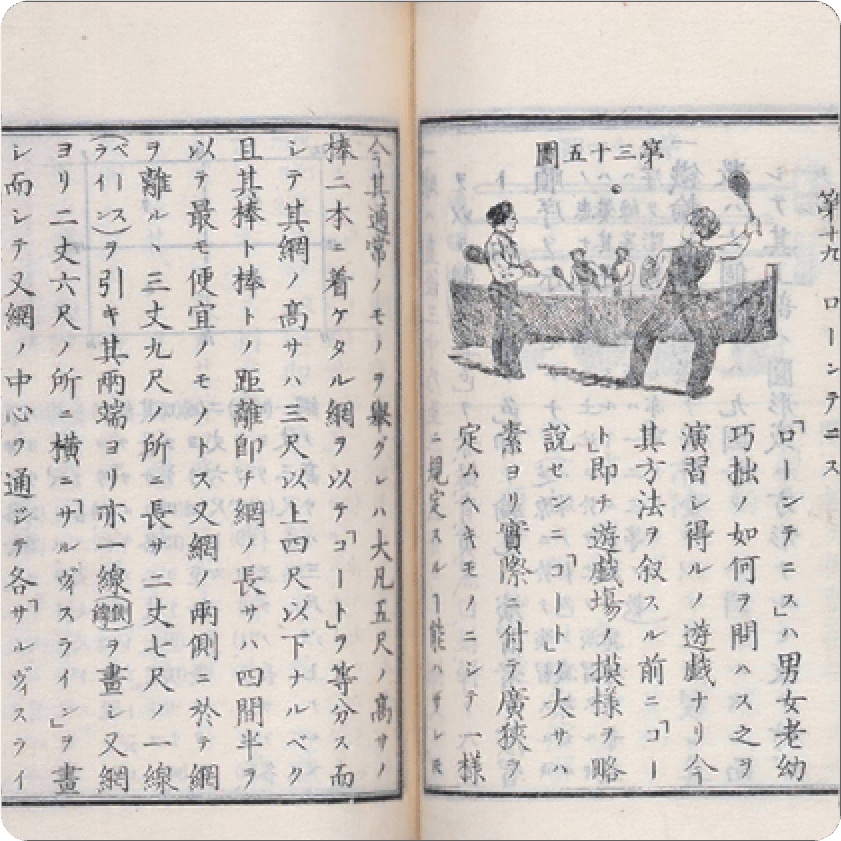 第十九　ローンテニス
第三十五圖
「ローンテニス」ハ男女老幼
巧拙ノ如何ヲ問ハス之ヲ
演習シ得ルノ遊戯ナリ今
其方法ヲ叙スル前ニ「コー
ト」即チ遊戯塲ノ摸樣ヲ略
説センニ「コート」ノ大サハ
素ヨリ實際ニ付テ廣狹ヲ
定ムヘキモノニシテ一樣
ニ規定スルヿ能ハサレ𪜈
今其通常ノモノヲ擧グレハ大凡五尺ノ高サノ
棒二本ニ着ケタル網ヲ以テ「コート」ヲ等分ス而
シテ其網ノ高サハ三尺以上四尺以下ナルベク
且其棒ト棒トノ距離即チ網ノ長サハ四間半ヲ
以テ最モ便宜ノモノトス又網ノ兩側ニ於テ網
ヲ離ルヽ三丈九尺ノ所ニ長サ二丈七尺ノ一線
(ベースライン)ヲ引キ其兩端ヨリ亦一線(側線)ヲ畫シ又網
ヨリ二丈六尺ノ所ニ横ニ「サルヴィスライン」ヲ畫
シ而シテ又網ノ中心ヲ通ジテ各「サルヴィスライ